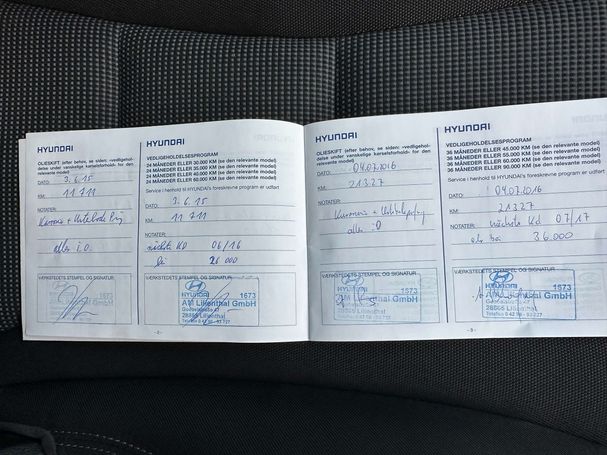 HYUNDAI
OLIESKIFT (efter behov, se siden: «vedligehol-
delse under vanskelige kørselsforhold» for den
relevante model)
DATO: 3.6.15
KM: 11 711
NOTATER:
alles i.O.
VÆRKSTEDETS STEMPEL OG SIGNATUR
HYUNDAI
VEDLIGEHOLDELSESPROGRAM
24 MÅNEDER ELLER 30.000 KM (se den relevante model)
24 MÅNEDER ELLER 35.000 KM (se den relevante model)
24 MÅNEDER ELLER 40.000 KM (se den relevante model)
24 MÅNEDER ELLER 60.000 KM (se den relevante model)
Service i henhold til HYUNDAI's foreskrevne program er udført
DATO: 3.6.15
KM: 11 711
NOTATER:
nächste KD 06/16
26 000
VÆRKSTEDETS STEMPEL OG SIGNATUR
HYUNDAI 1673
AM Lilienthal GmbH
28865 Lilienthal
- 2 -
HYUNDAI
OLIESKIFT (efter behov, se siden: «vedligehol-
delse under vanskelige kørselsforhold» for den
relevante model)
DATO: 04.07.2016
KM: 21327
NOTATER:
VÆRKSTEDETS STEMPEL OG SIGNATUR
HYUNDAI 1673
GmbH
HYUNDAI
VEDLIGEHOLDELSESPROGRAM
36 MÅNEDER ELLER 45.000 KM (se den relevante model)
36 MÅNEDER ELLER 55.000 KM (se den relevante model)
36 MÅNEDER ELLER 60.000 KM (se den relevante model)
36 MÅNEDER ELLER 90.000 KM (se den relevante model)
Service i henhold til HYUNDAI's foreskrevne program er udført
DATO: 04.07.2016
KM: 21327
NOTATER: nächste Kd 07/17
36.000
VÆRKSTEDETS STEMPEL OG SIGNATUR
HYUNDAI 1673
GmbH
28865 Lilienthal
- 3 -